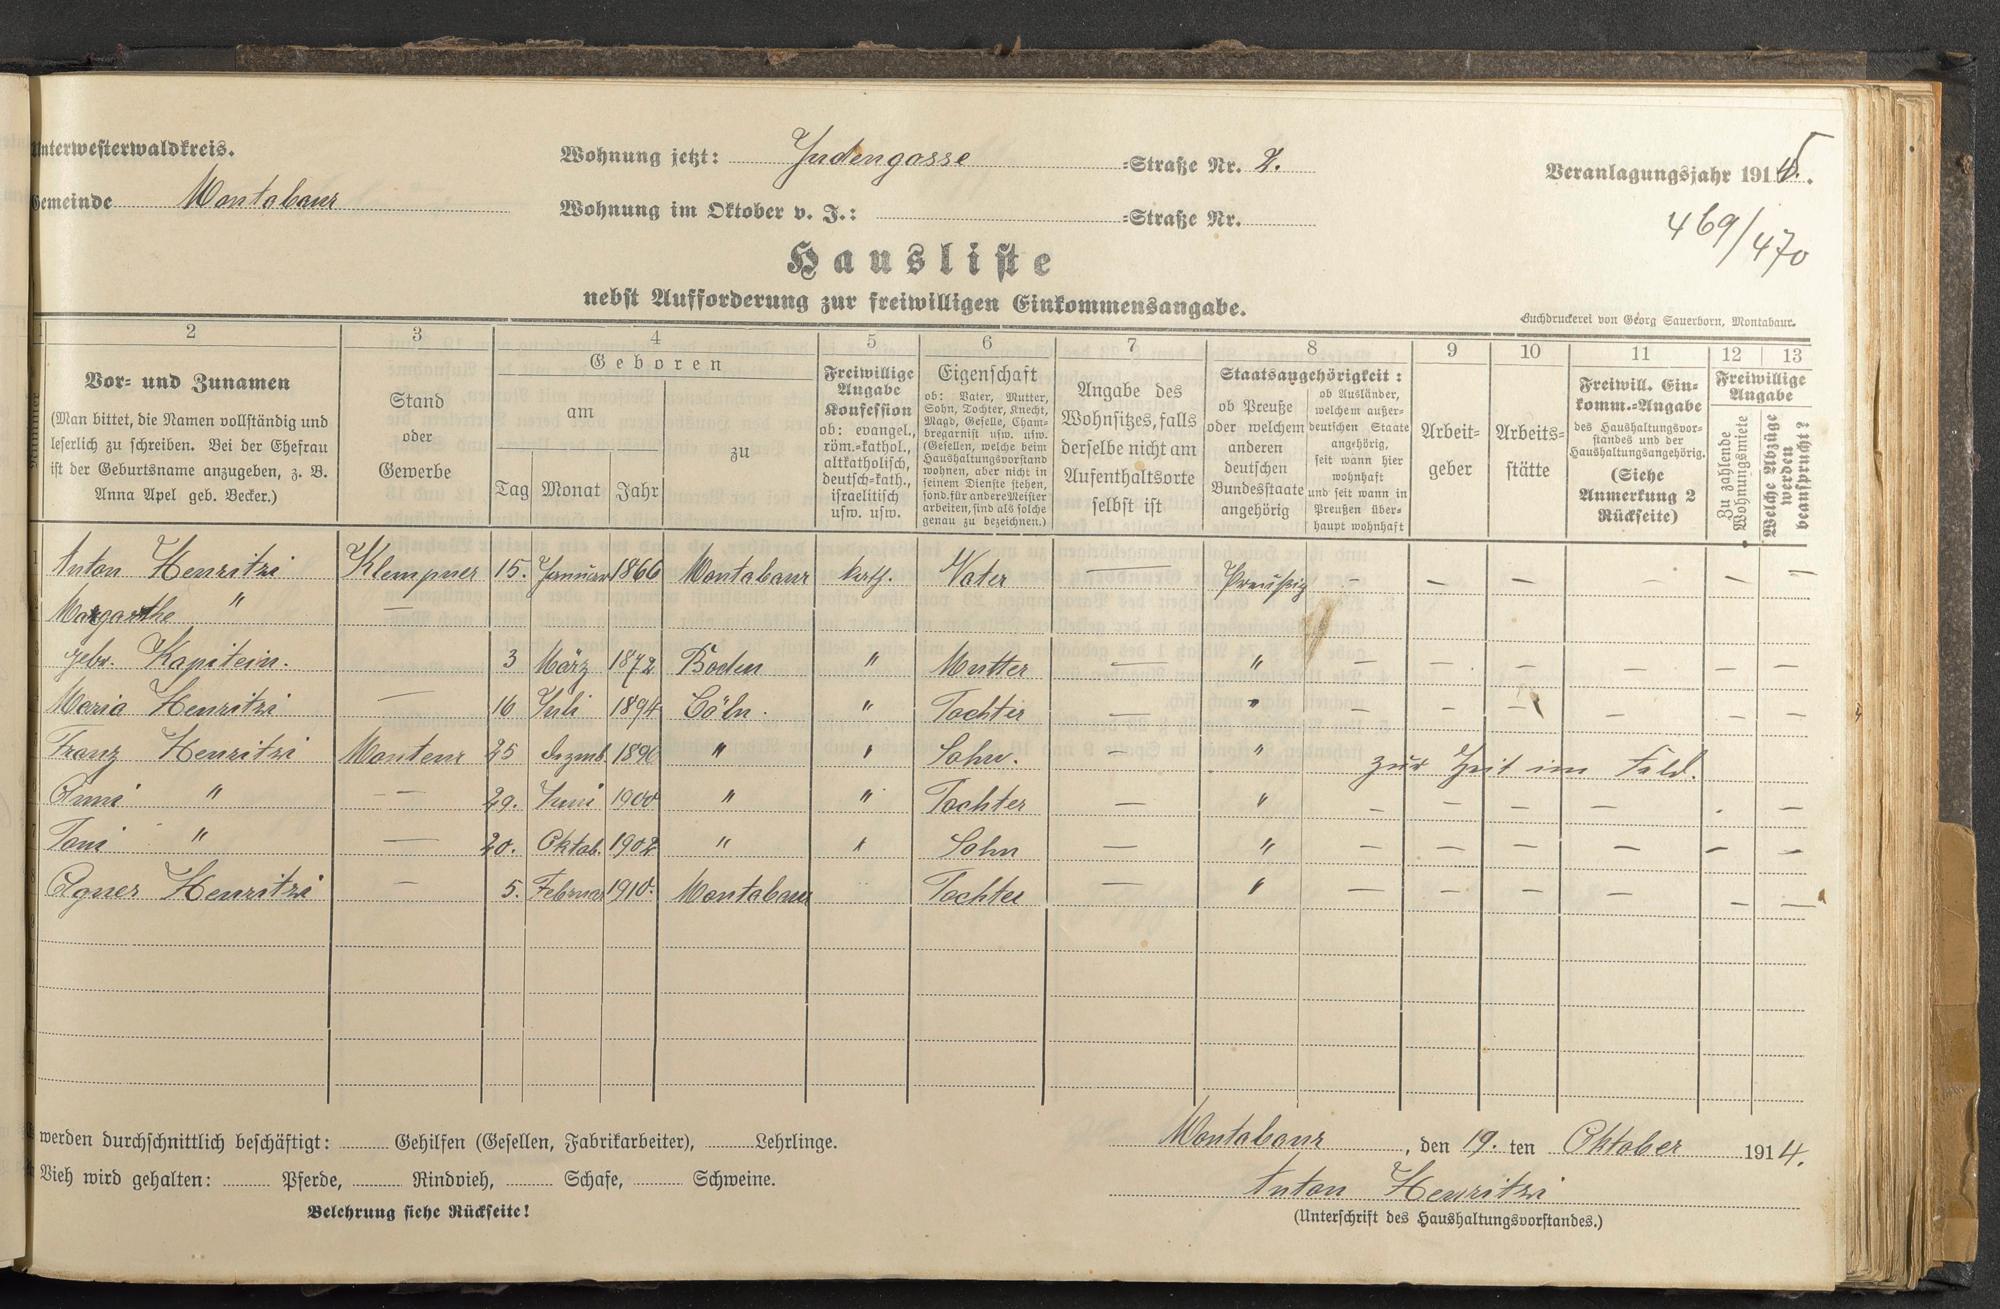 Unterwesterwaldkreis.
Gemeinde Montabaur
Wohnung jetzt: Judengasse =Straße Nr. 2.
Wohnung im Oktober v. J.: =Straße Nr.
Veranlagungsjahr 1915.
469/470
Hausliste
nebst Aufforderung zur freiwilligen Einkommensangabe.
Buchdruckerei von Georg Sauerborn, Montabaur.
1 2 3 4 5 6 7 8 9 10 11 12 13
Nummer
Vor- und Zunamen
(Man bittet, die Namen vollständig und
leserlich zu schreiben. Bei der Ehefrau
ist der Geburtsname anzugeben, z. B.
Anna Apel geb. Becker.)
Stand
oder
Gewerbe
Geboren
am
Tag Monat Jahr
zu
Freiwillige
Angabe
Konfession
ob: evangel.,
röm.-kathol.,
altkatholisch,
deutsch-kath.,
israelitisch
usw. usw.
Eigenschaft
ob: Vater, Mutter,
Sohn, Tochter, Knecht,
Magd, Geselle, Cham-
bregarnist usw. usw.
(Gesellen, welche beim
Haushaltungsvorstand
wohnen, aber nicht in
seinem Dienste stehen,
sond. für andere Meister
arbeiten, sind als solche
genau zu bezeichnen.)
Angabe des
Wohnsitzes, falls
derselbe nicht am
Aufenthaltsorte
selbst ist
Staatsangehörigkeit:
ob Preuße
oder welchem
anderen
deutschen
Bundesstaate
angehörig
ob Ausländer,
welchem außer-
deutschen Staate
angehörig,
seit wann hier
wohnhaft
und seit wann in
Preußen über-
haupt wohnhaft
Arbeit-
geber
Arbeits-
stätte
Freiwill. Ein-
komm.-Angabe
des Haushaltungsvor-
standes und der
Haushaltungsangehörig.
(Siehe
Anmerkung 2
Rückseite)
Freiwillige
Angabe
Zu zahlende
Wohnungsmiete
Welche Abzüge
werden
beansprucht?
Anton Henritzi Klempner 15. Januar 1866 Montabaur kath. Vater — Preußig — — — — — —
Margarthe " —
gebr. Kapitein. 3 März 1872 Boden " Mutter — " — — — — — —
Maria Henritzi — 16 Juli 1894 Cöln. " Tochter — " — — — — — —
Franz Henritzi Monteur 25 Dezmb. 1896 " " Sohn. — " zur Zeit im Feld.
Anni " — 29. Juni 1900 " " Tochter — " — — — — . —
Toni " — 20. Oktob. 1902 " " Sohn — " — — — — — —
Agnes Henritzi — 5. Februar 1910. Montabaur Tochter — " — — — — — —
werden durchschnittlich beschäftigt: Gehilfen (Gesellen, Fabrikarbeiter), Lehrlinge.
Vieh wird gehalten: Pferde, Rindvieh, Schafe, Schweine.
Belehrung siehe Rückseite!
Montabaur, den 19. ten Oktober 1914.
Anton Henritzi
(Unterschrift des Haushaltungsvorstandes.)